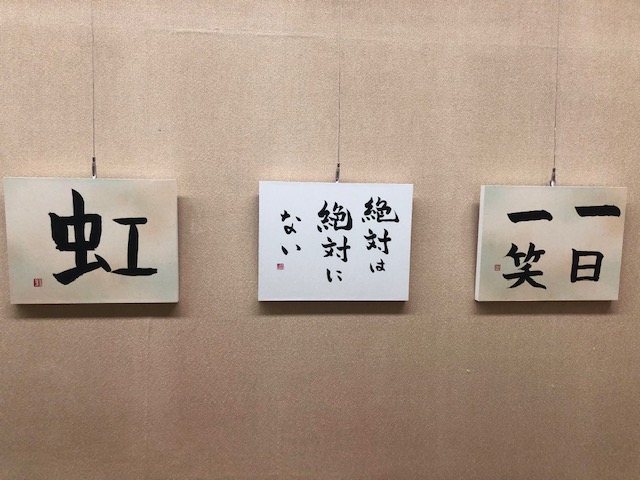 虹
絶対は
絶対に
ない
一日
一笑